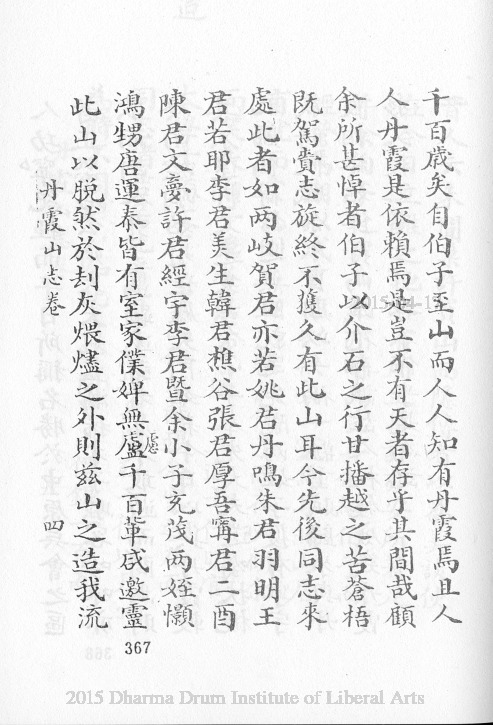 千百歲矣自伯子至山而人人知有丹霞焉且人
人丹霞是依賴焉是豈不有天者存乎其間哉顧
余所甚悼者伯子以介石之行甘播越之苦蒼梧
既駕賫志旋終不獲久有此山耳今先後同志來
處此者如两岐賀君亦若姚君丹鳴朱君羽明王
君若耶李君美生韓君樵谷張君厚吾甯君二酉
陳君文夢許君經宇李君暨余小子充茂两姪灝
鴻甥唐運泰皆有室家僕婢無盧慮千百輩咸邀靈
此山以脫然於刦灰煨燼之外則茲山之造我流
丹霞山志卷 四
367
2015 Dharma Drum Institute of Liberal Arts